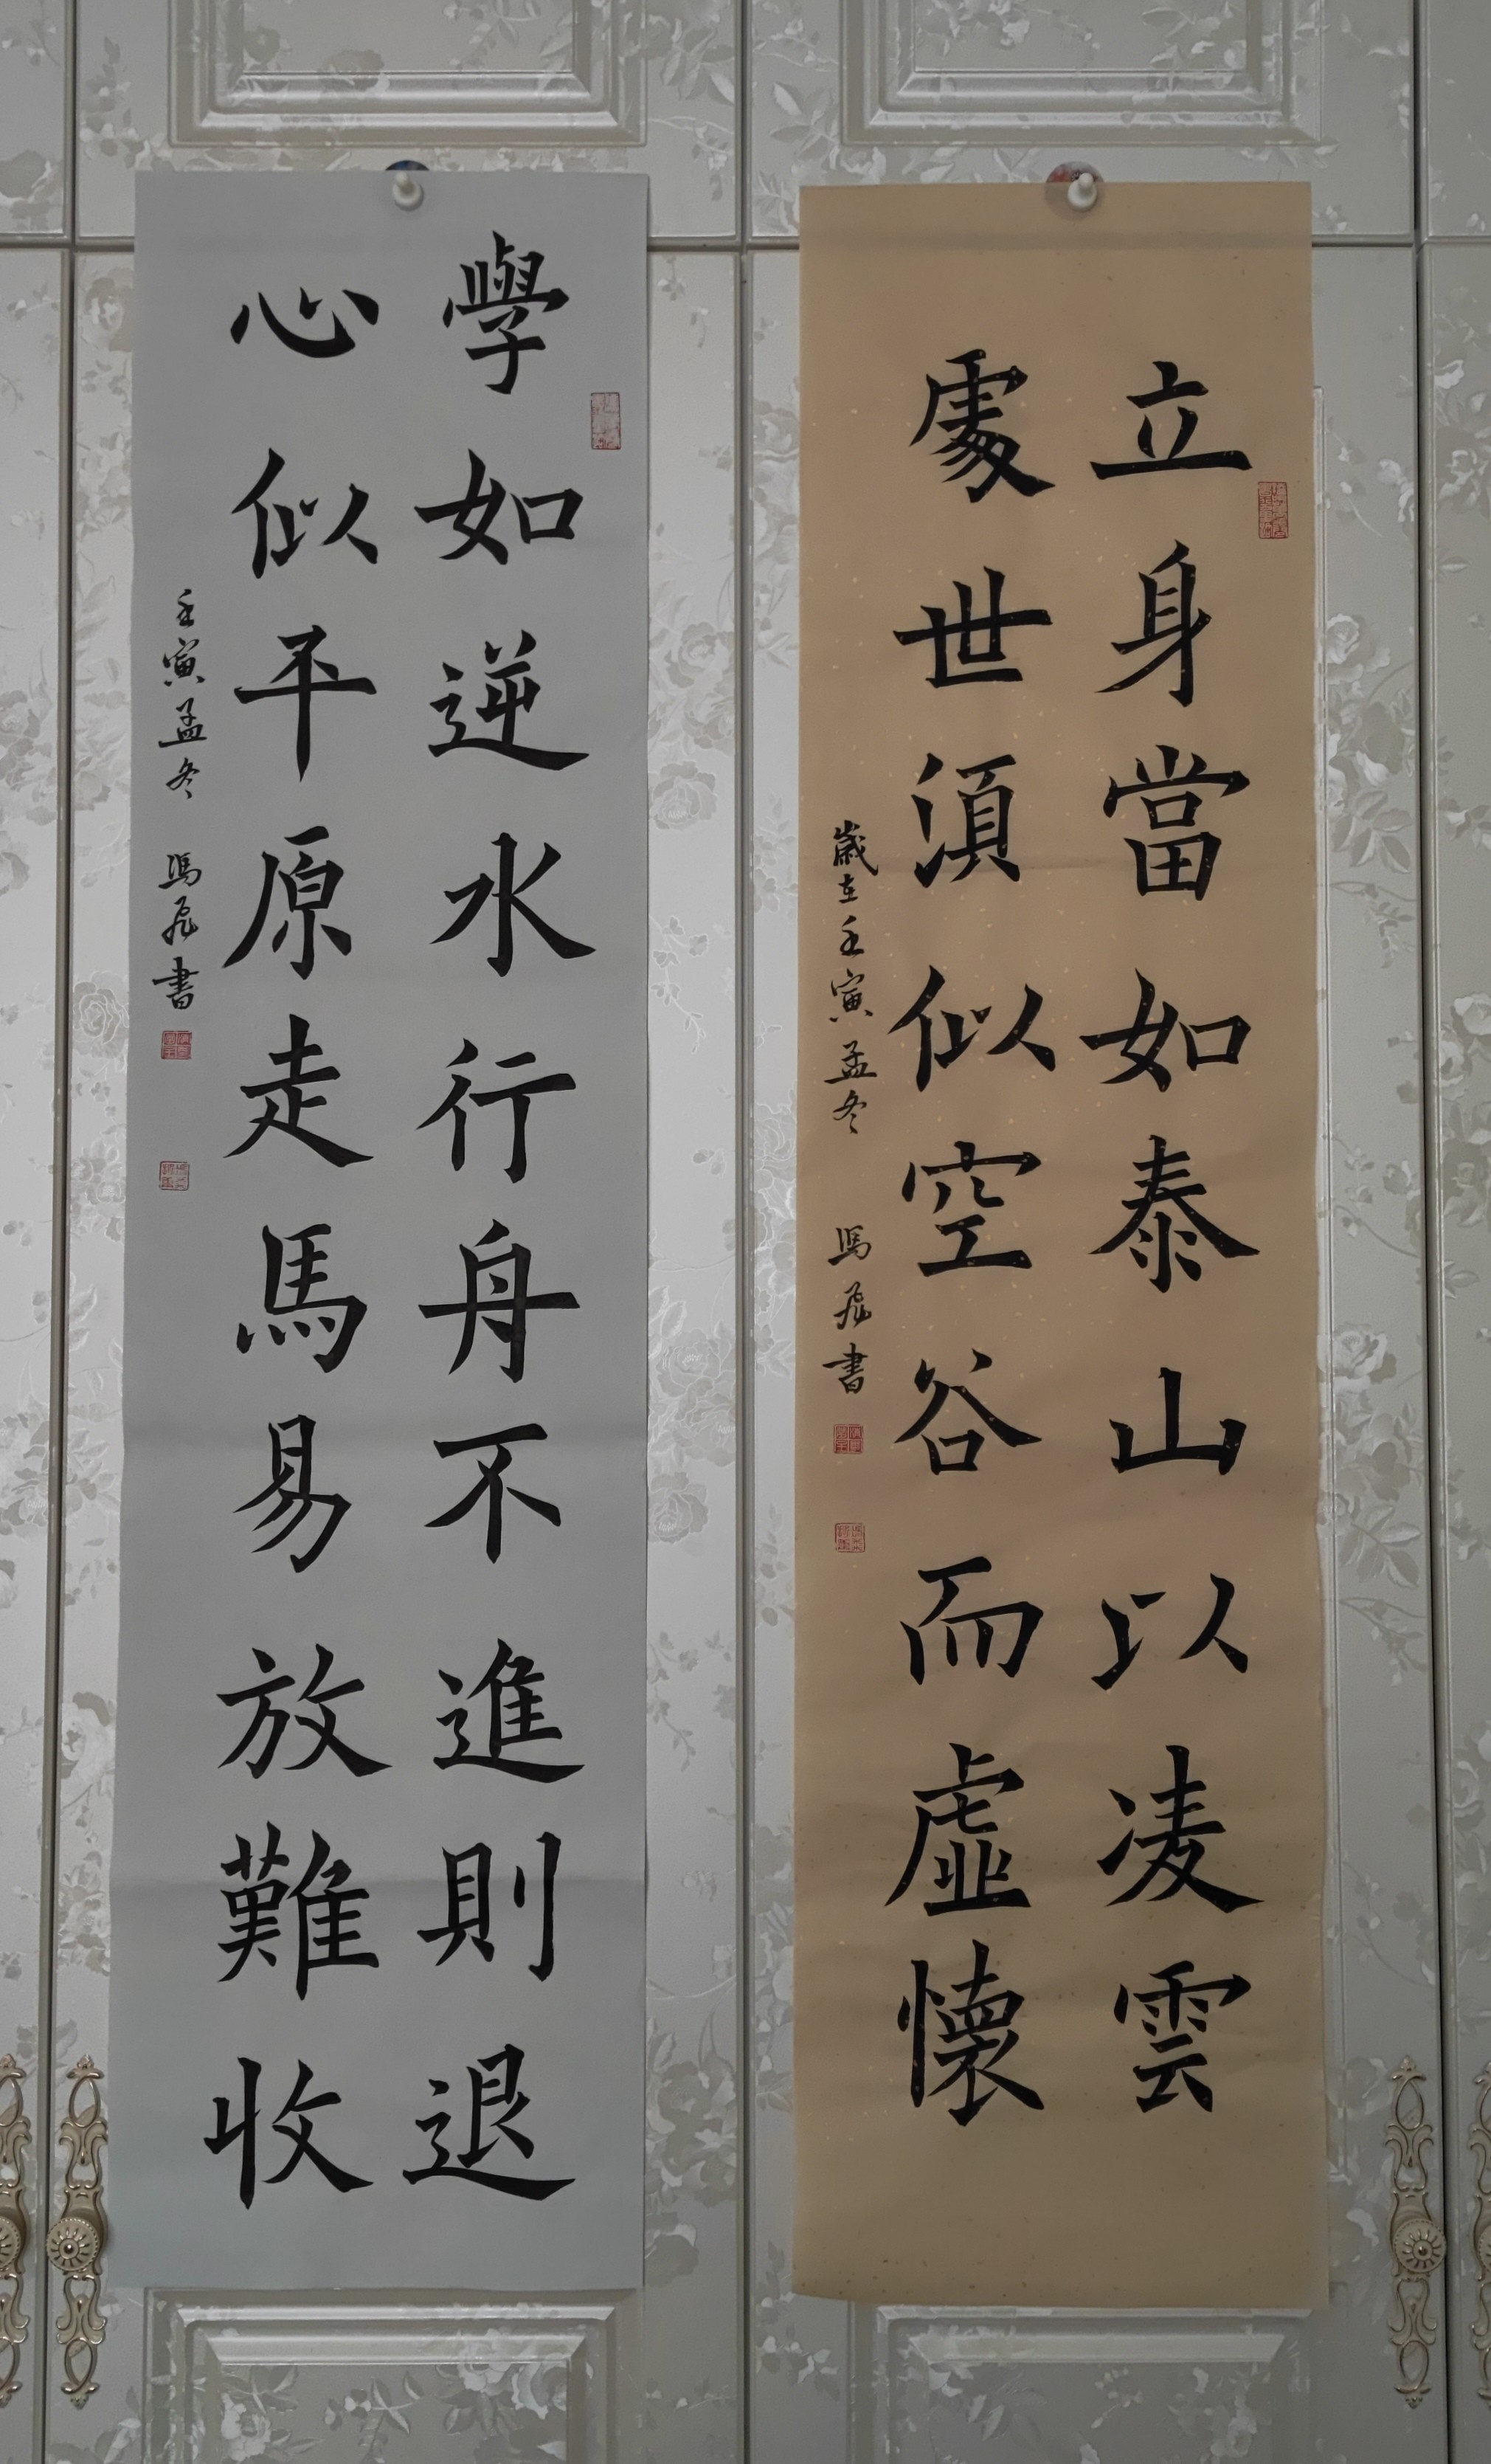 立身當如泰山以凌雲
處世須似空谷而虛懷
歲在壬寅孟冬 馮 書
學如逆水行舟不進則退
心似平原走馬易放難收
壬寅孟冬 馮 書